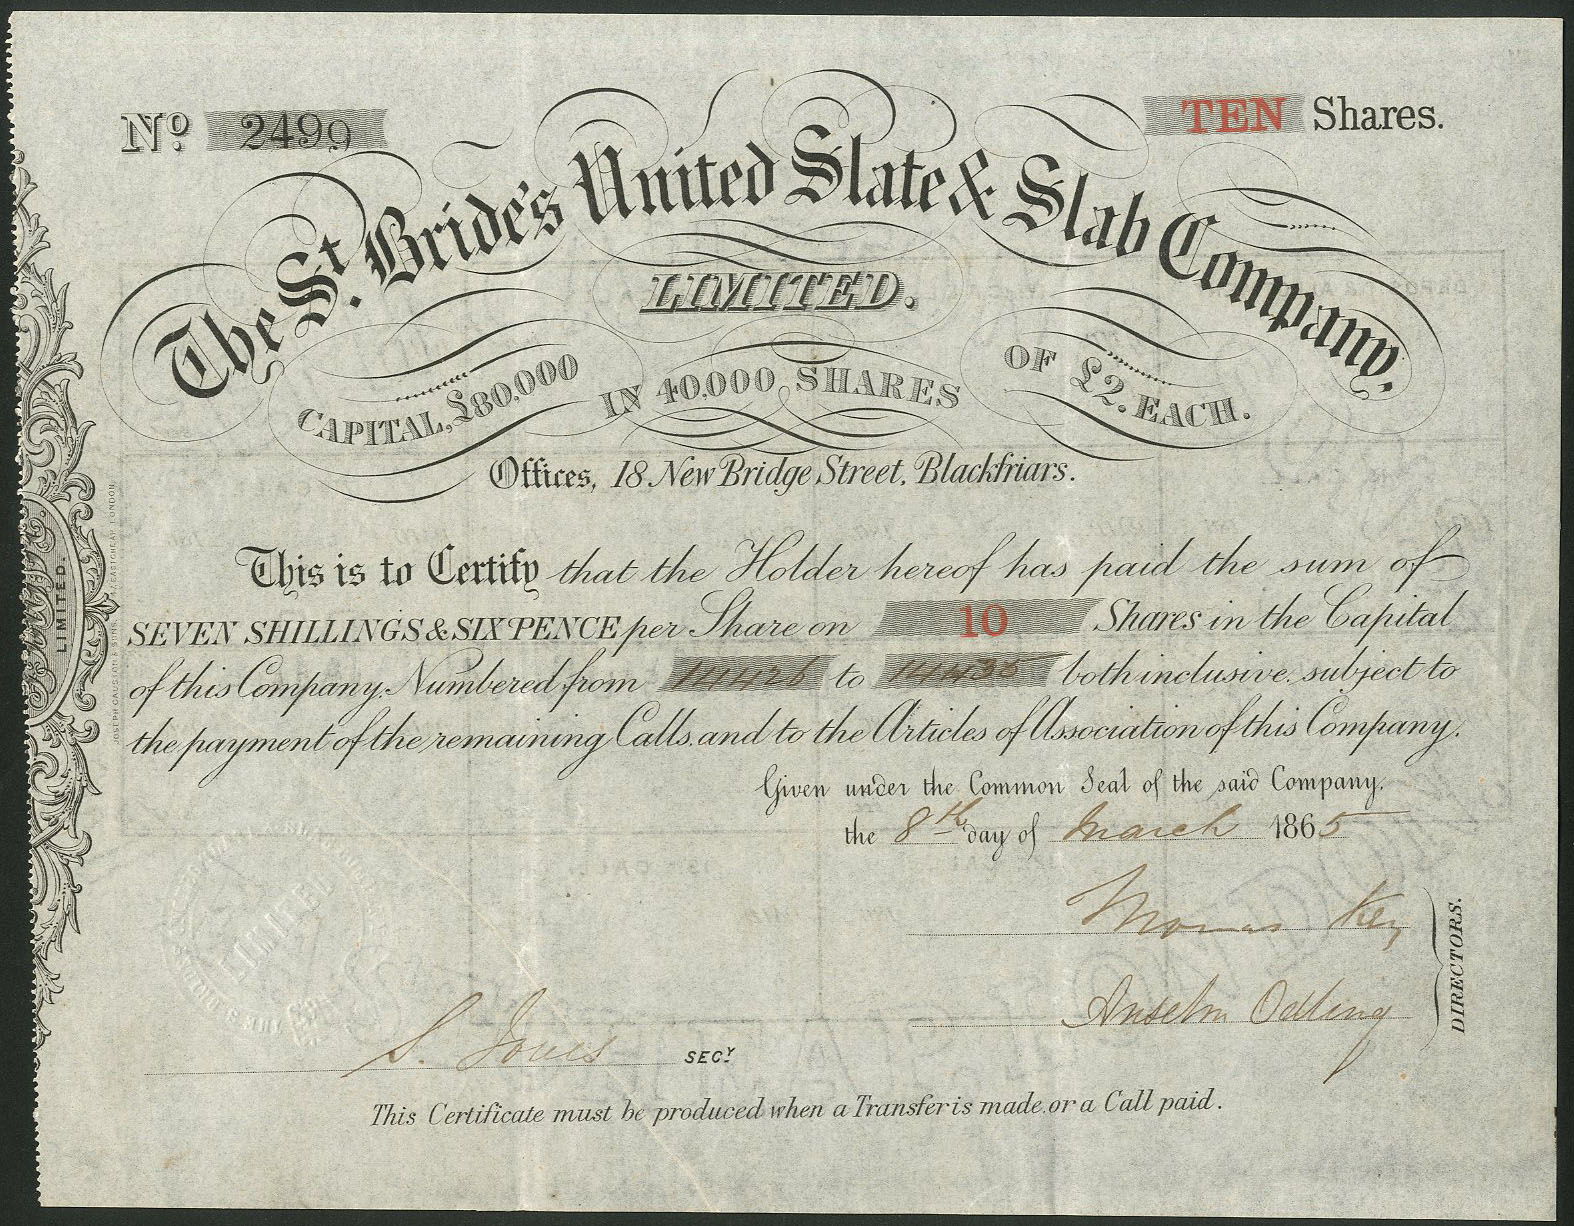 No. 2499
TEN Shares.
The St. Bride's United Slate & Slab Company.
LIMITED.
CAPITAL, £80,000 IN 40,000 SHARES OF £2. EACH.
Offices, 18, New Bridge Street, Blackfriars.
This is to Certify that the Holder hereof has paid the sum of
SEVEN SHILLINGS & SIXPENCE per Share on 10 Shares in the Capital
of this Company, Numbered from 14426 to 14435 both inclusive, subject to
the payment of the remaining Calls, and to the Articles of Association of this Company.
Given under the Common Seal of the said Company,
the 8th day of March 1865
Thomas Key
Anselm Odling
DIRECTORS.
S. Jones SECY.
This Certificate must be produced when a Transfer is made, or a Call paid.
LIMITED.
JOSEPH CAUSTON & SONS, EASTCHEAP LONDON
LIMITED